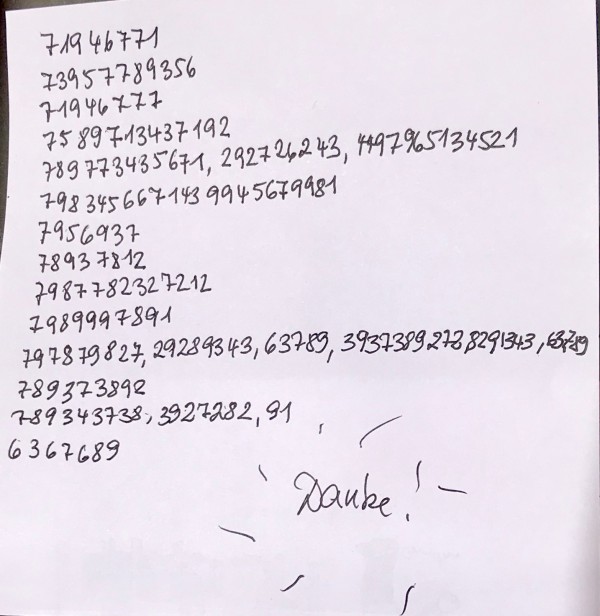 71946771
73957789356
71946777
7589713437192
789773435671, 292726243, 4497965134521
7983456671439945679981
7956937
78937812
7987782327212
7989997891
797879827, 29289343, 63789, 3937389278291343, 63789
789373892
789343738, 3927282, 91
6367689
Danke!